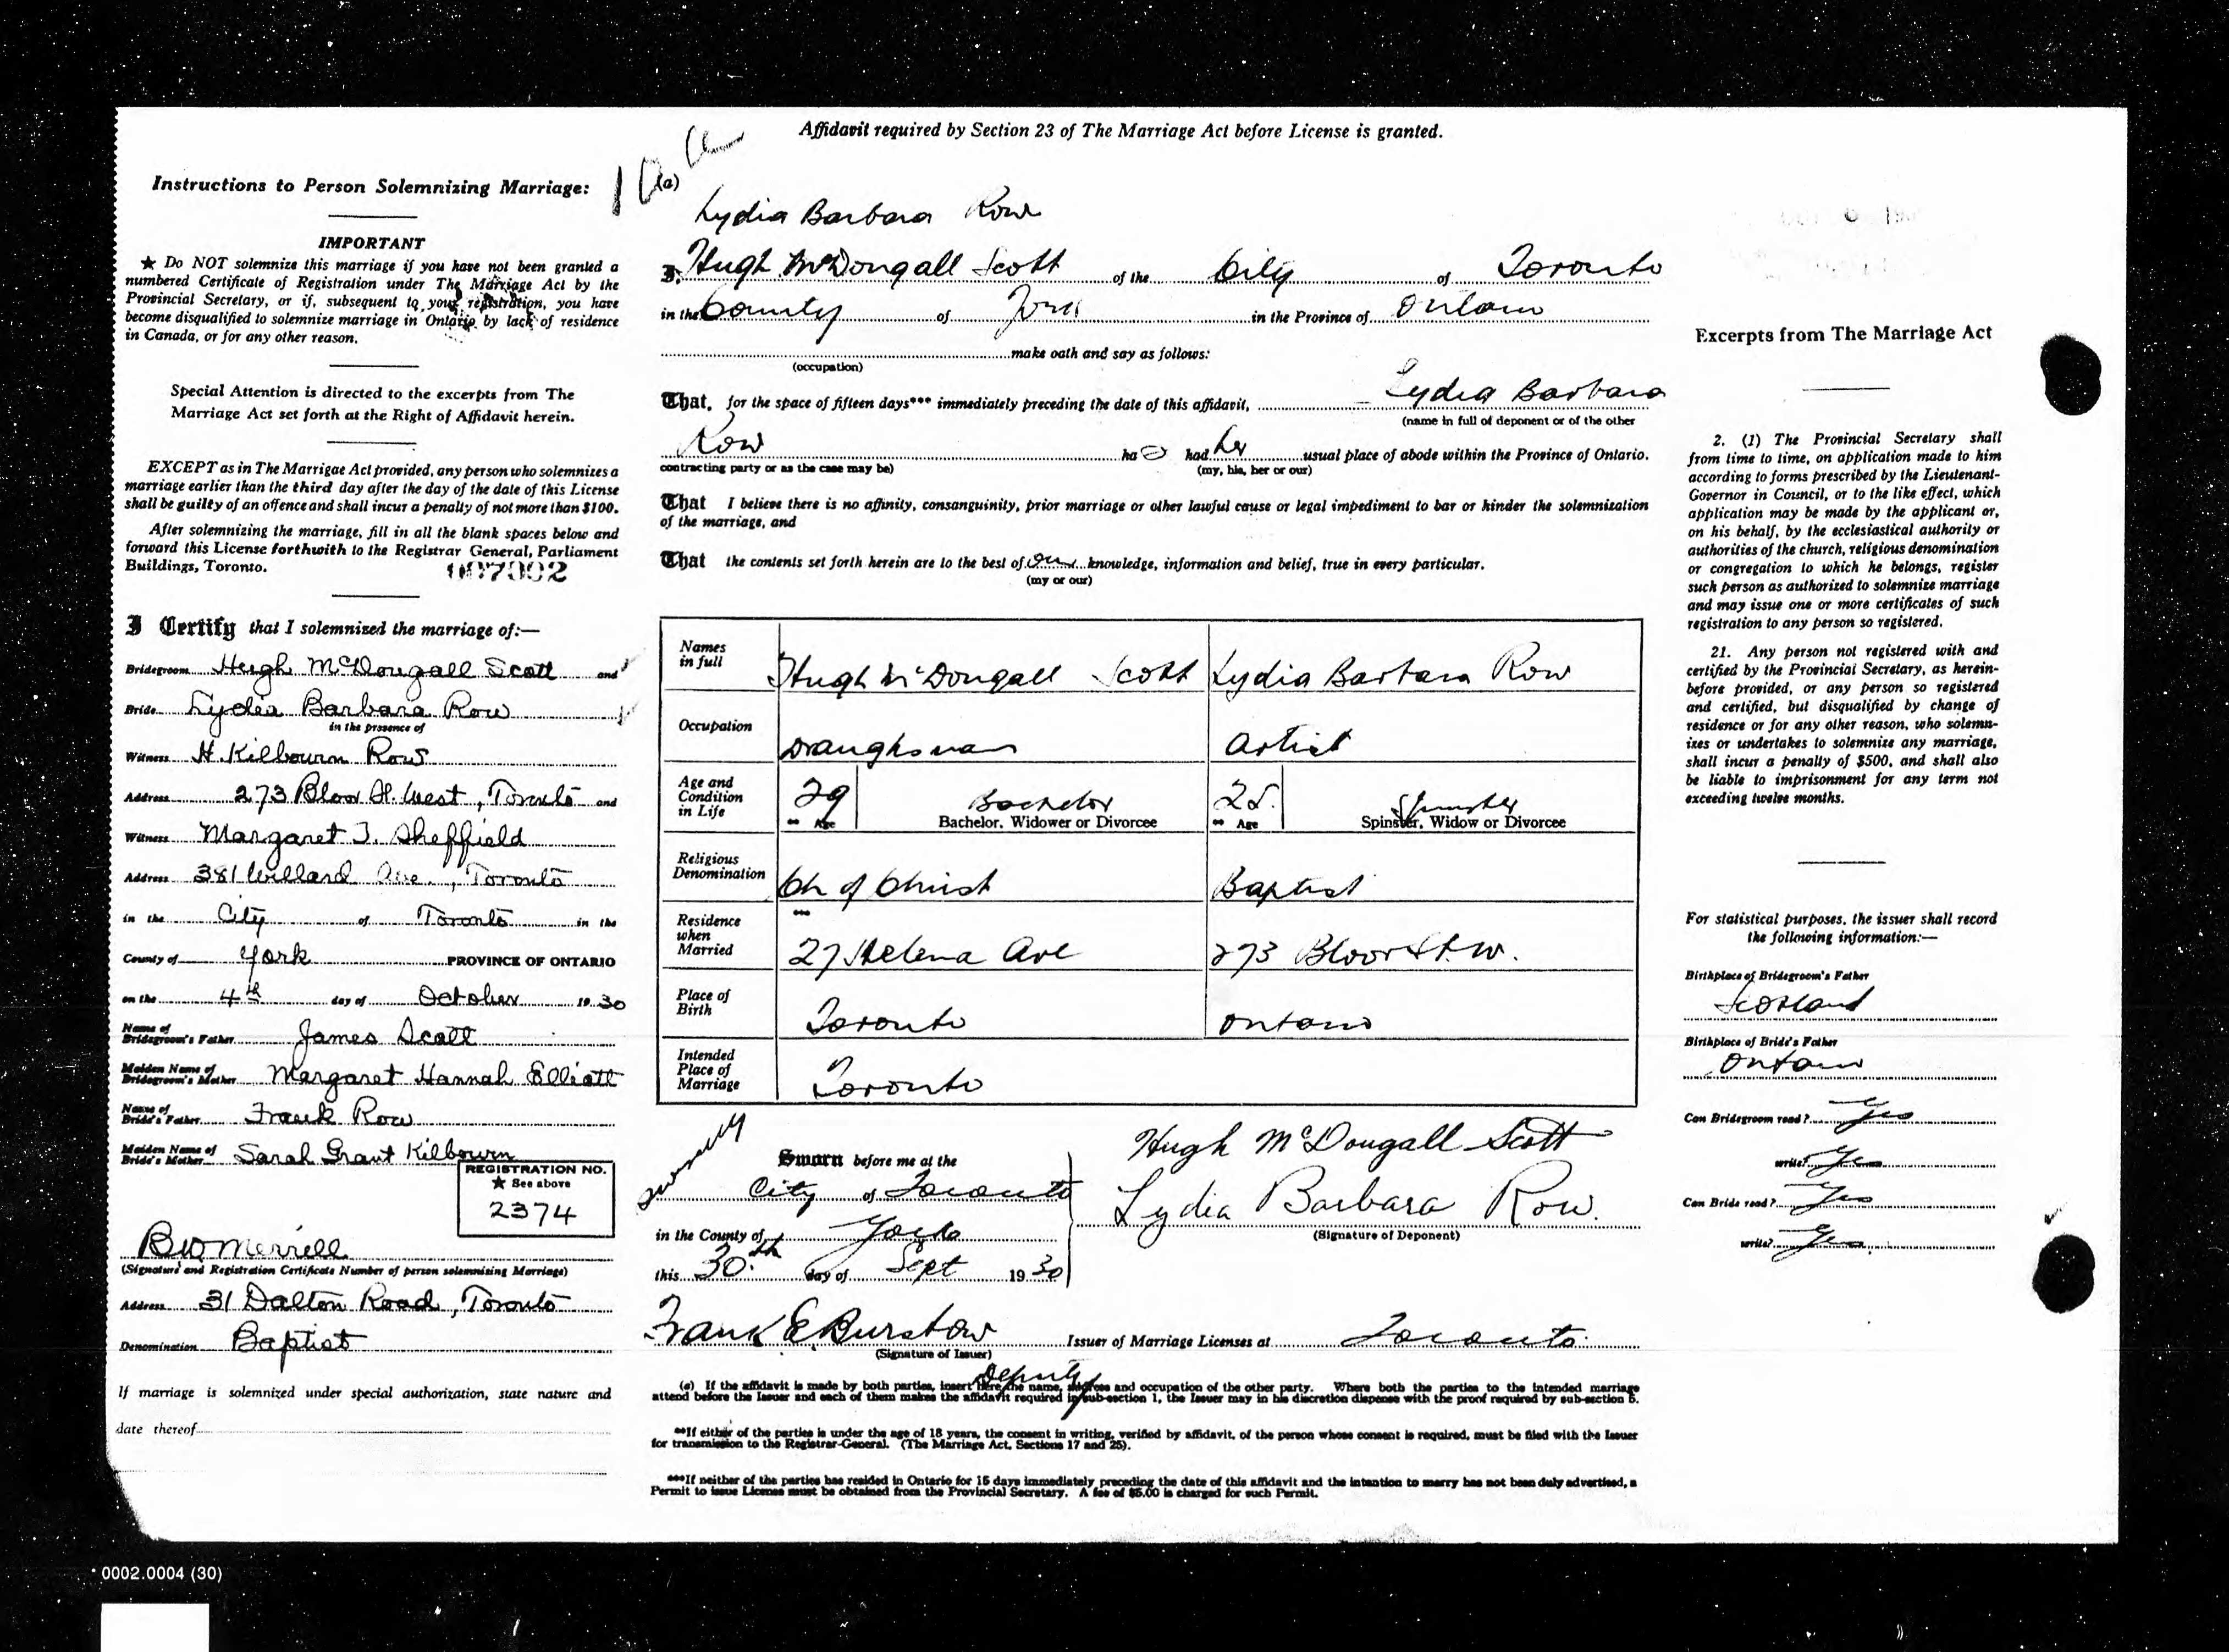 Affidavit required by Section 23 of The Marriage Act before License is granted.
Instructions to Person Solemnizing Marriage:
IMPORTANT
★ Do NOT solemnize this marriage if you have not been granted a
numbered Certificate of Registration under The Marriage Act by the
Provincial Secretary, or if, subsequent to your registration, you have
become disqualified to solemnize marriage in Ontario by lack of residence
in Canada, or for any other reason.
Special Attention is directed to the excerpts from The
Marriage Act set forth at the Right of Affidavit herein.
EXCEPT as in The Marrigae Act provided, any person who solemnizes a
marriage earlier than the third day after the day of the date of this License
shall be guilty of an offence and shall incur a penalty of not more than $100.
After solemnizing the marriage, fill in all the blank spaces below and
forward this License forthwith to the Registrar General, Parliament
Buildings, Toronto.
007002
I Certify that I solemnized the marriage of:—
Bridegroom Hugh McDougall Scott and
Bride Lydia Barbara Row
in the presence of
Witness H. Kilbourn Row
Address 273 Bloor St. West, Toronto and
Witness Margaret J. Sheffield
Address 381 Willard Ave., Toronto
in the City of Toronto in the
County of York PROVINCE OF ONTARIO
on the 4th day of October 1930
Name of Bridegroom's Father James Scott
Maiden Name of Bridegroom's Mother Margaret Hannah Elliott
Name of Bride's Father Frank Row
Maiden Name of Bride's Mother Sarah Grant Kilbourn
REGISTRATION NO.
★ See above
2374
B W Merrill
(Signature and Registration Certificate Number of person solemnizing Marriage)
Address 31 Dalton Road, Toronto
Denomination Baptist
If marriage is solemnized under special authorization, state nature and
date thereof
(a)
Lydia Barbara Row
I, Hugh McDougall Scott of the City of Toronto
in the County of York in the Province of Ontario
make oath and say as follows:
(occupation)
That, for the space of fifteen days*** immediately preceding the date of this affidavit, Lydia Barbara
(name in full of deponent or of the other
Row ha s had her usual place of abode within the Province of Ontario.
contracting party or as the case may be) (my, his, her or our)
That I believe there is no affinity, consanguinity, prior marriage or other lawful cause or legal impediment to bar or hinder the solemnization
of the marriage, and
That the contents set forth herein are to the best of our knowledge, information and belief, true in every particular.
(my or our)
Names in full Hugh McDougall Scott Lydia Barbara Row
Occupation Draughsman Artist
Age and Condition in Life 29 Bachelor 25. Spinster
** Age Bachelor, Widower or Divorcee ** Age Spinster, Widow or Divorcee
Religious Denomination Ch of Christ Baptist
***
Residence when Married 27 Helena Ave 273 Bloor St. W.
Place of Birth Toronto Ontario
Intended Place of Marriage Toronto
severally
Sworn before me at the
City of Toronto
in the County of York
this 30th day of Sept 1930
Hugh McDougall Scott
Lydia Barbara Row.
(Signature of Deponent)
Frank E Burstow Issuer of Marriage Licenses at Toronto.
(Signature of Issuer)
Deputy
(a) If the affidavit is made by both parties, insert here the name, address and occupation of the other party. Where both the parties to the intended marriage
attend before the Issuer and each of them makes the affidavit required in sub-section 1, the Issuer may in his discretion dispense with the proof required by sub-section 5.
**If either of the parties is under the age of 18 years, the consent in writing, verified by affidavit, of the person whose consent is required, must be filed with the Issuer
for transmission to the Registrar-General. (The Marriage Act, Sections 17 and 25).
***If neither of the parties has resided in Ontario for 15 days immediately preceding the date of this affidavit and the intention to marry has not been duly advertised, a
Permit to issue License must be obtained from the Provincial Secretary. A fee of $5.00 is charged for such Permit.
Excerpts from The Marriage Act
2. (1) The Provincial Secretary shall
from time to time, on application made to him
according to forms prescribed by the Lieutenant-
Governor in Council, or to the like effect, which
application may be made by the applicant or,
on his behalf, by the ecclesiastical authority or
authorities of the church, religious denomination
or congregation to which he belongs, register
such person as authorized to solemnize marriage
and may issue one or more certificates of such
registration to any person so registered.
21. Any person not registered with and
certified by the Provincial Secretary, as herein-
before provided, or any person so registered
and certified, but disqualified by change of
residence or for any other reason, who solemn-
izes or undertakes to solemnize any marriage,
shall incur a penalty of $500, and shall also
be liable to imprisonment for any term not
exceeding twelve months.
For statistical purposes, the issuer shall record
the following information:—
Birthplace of Bridegroom's Father
Scotland
Birthplace of Bride's Father
Ontario
Can Bridegroom read? Yes
write? Yes
Can Bride read? Yes
write? Yes
0002.0004 (30)